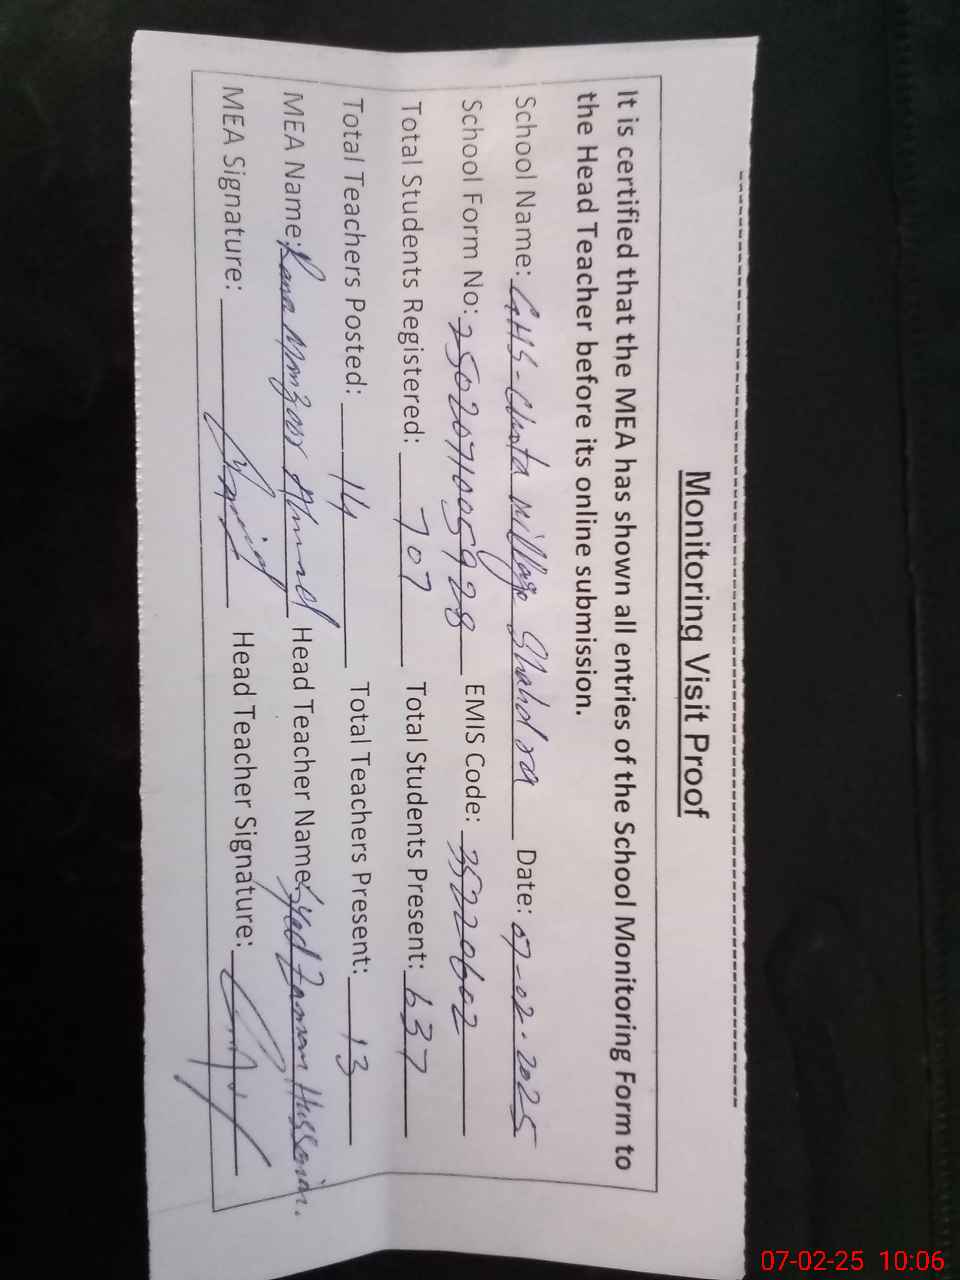 Monitoring Visit Proof
It is certified that the MEA has shown all entries of the School Monitoring Form to
the Head Teacher before its online submission.
School Name: GHS-Chota Village Shahdra Date: 07-02-2025
School Form No: 2502071005928 EMIS Code: 35220602
Total Students Registered: 707 Total Students Present: 637
Total Teachers Posted: 14 Total Teachers Present: 13
MEA Name: Rana Manzoor Ahmed Head Teacher Name: Syed Zaman Hussain.
MEA Signature: Head Teacher Signature:
07-02-25 10:06